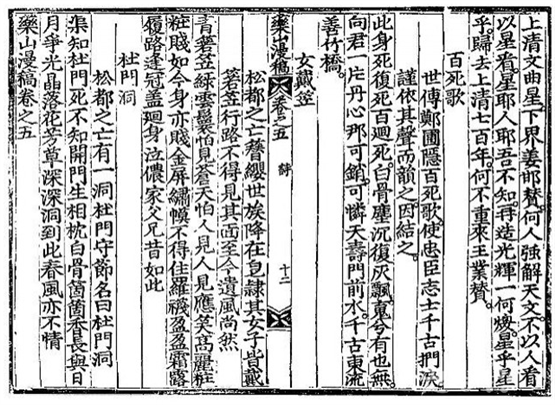 上清文曲星下界姜邯贊何人強解天文不以人看
以星看星耶人耶吾不知再造光輝一何燬星乎星
乎歸去上清七百年何不重來王業贊
百死歌
世傳鄭圃隱百死歌使忠臣志士千古捫淚
謹依其聲而韻之因結之
此身死復死百迴死白骨塵沉復灰飄䰟兮有也無
向君一片丹心那可銷可憐天壽門前水千古東流
善竹橋
藥山漫稿 卷之五 詩 十二
女戴笠
松都之亡簪纓世族降在皂隸其女子皆戴
箬笠行路不得見其面至今遺風尚然
青箬笠綠雲鬟怕見蒼天怕人見人見應笑高麗粧
粧賤如今身亦賤金屏繡幔不得住羅襪盈盈霜露
履路逢冠盖廻身泣儂家父兄昔如此
杜門洞
松都之亡有一洞杜門守節名曰杜門洞
知杜門死不知開門生相枕白骨箇箇香長與日
月爭光晶落花芳草深深洞到此春風亦不情
藥山漫稿卷之五